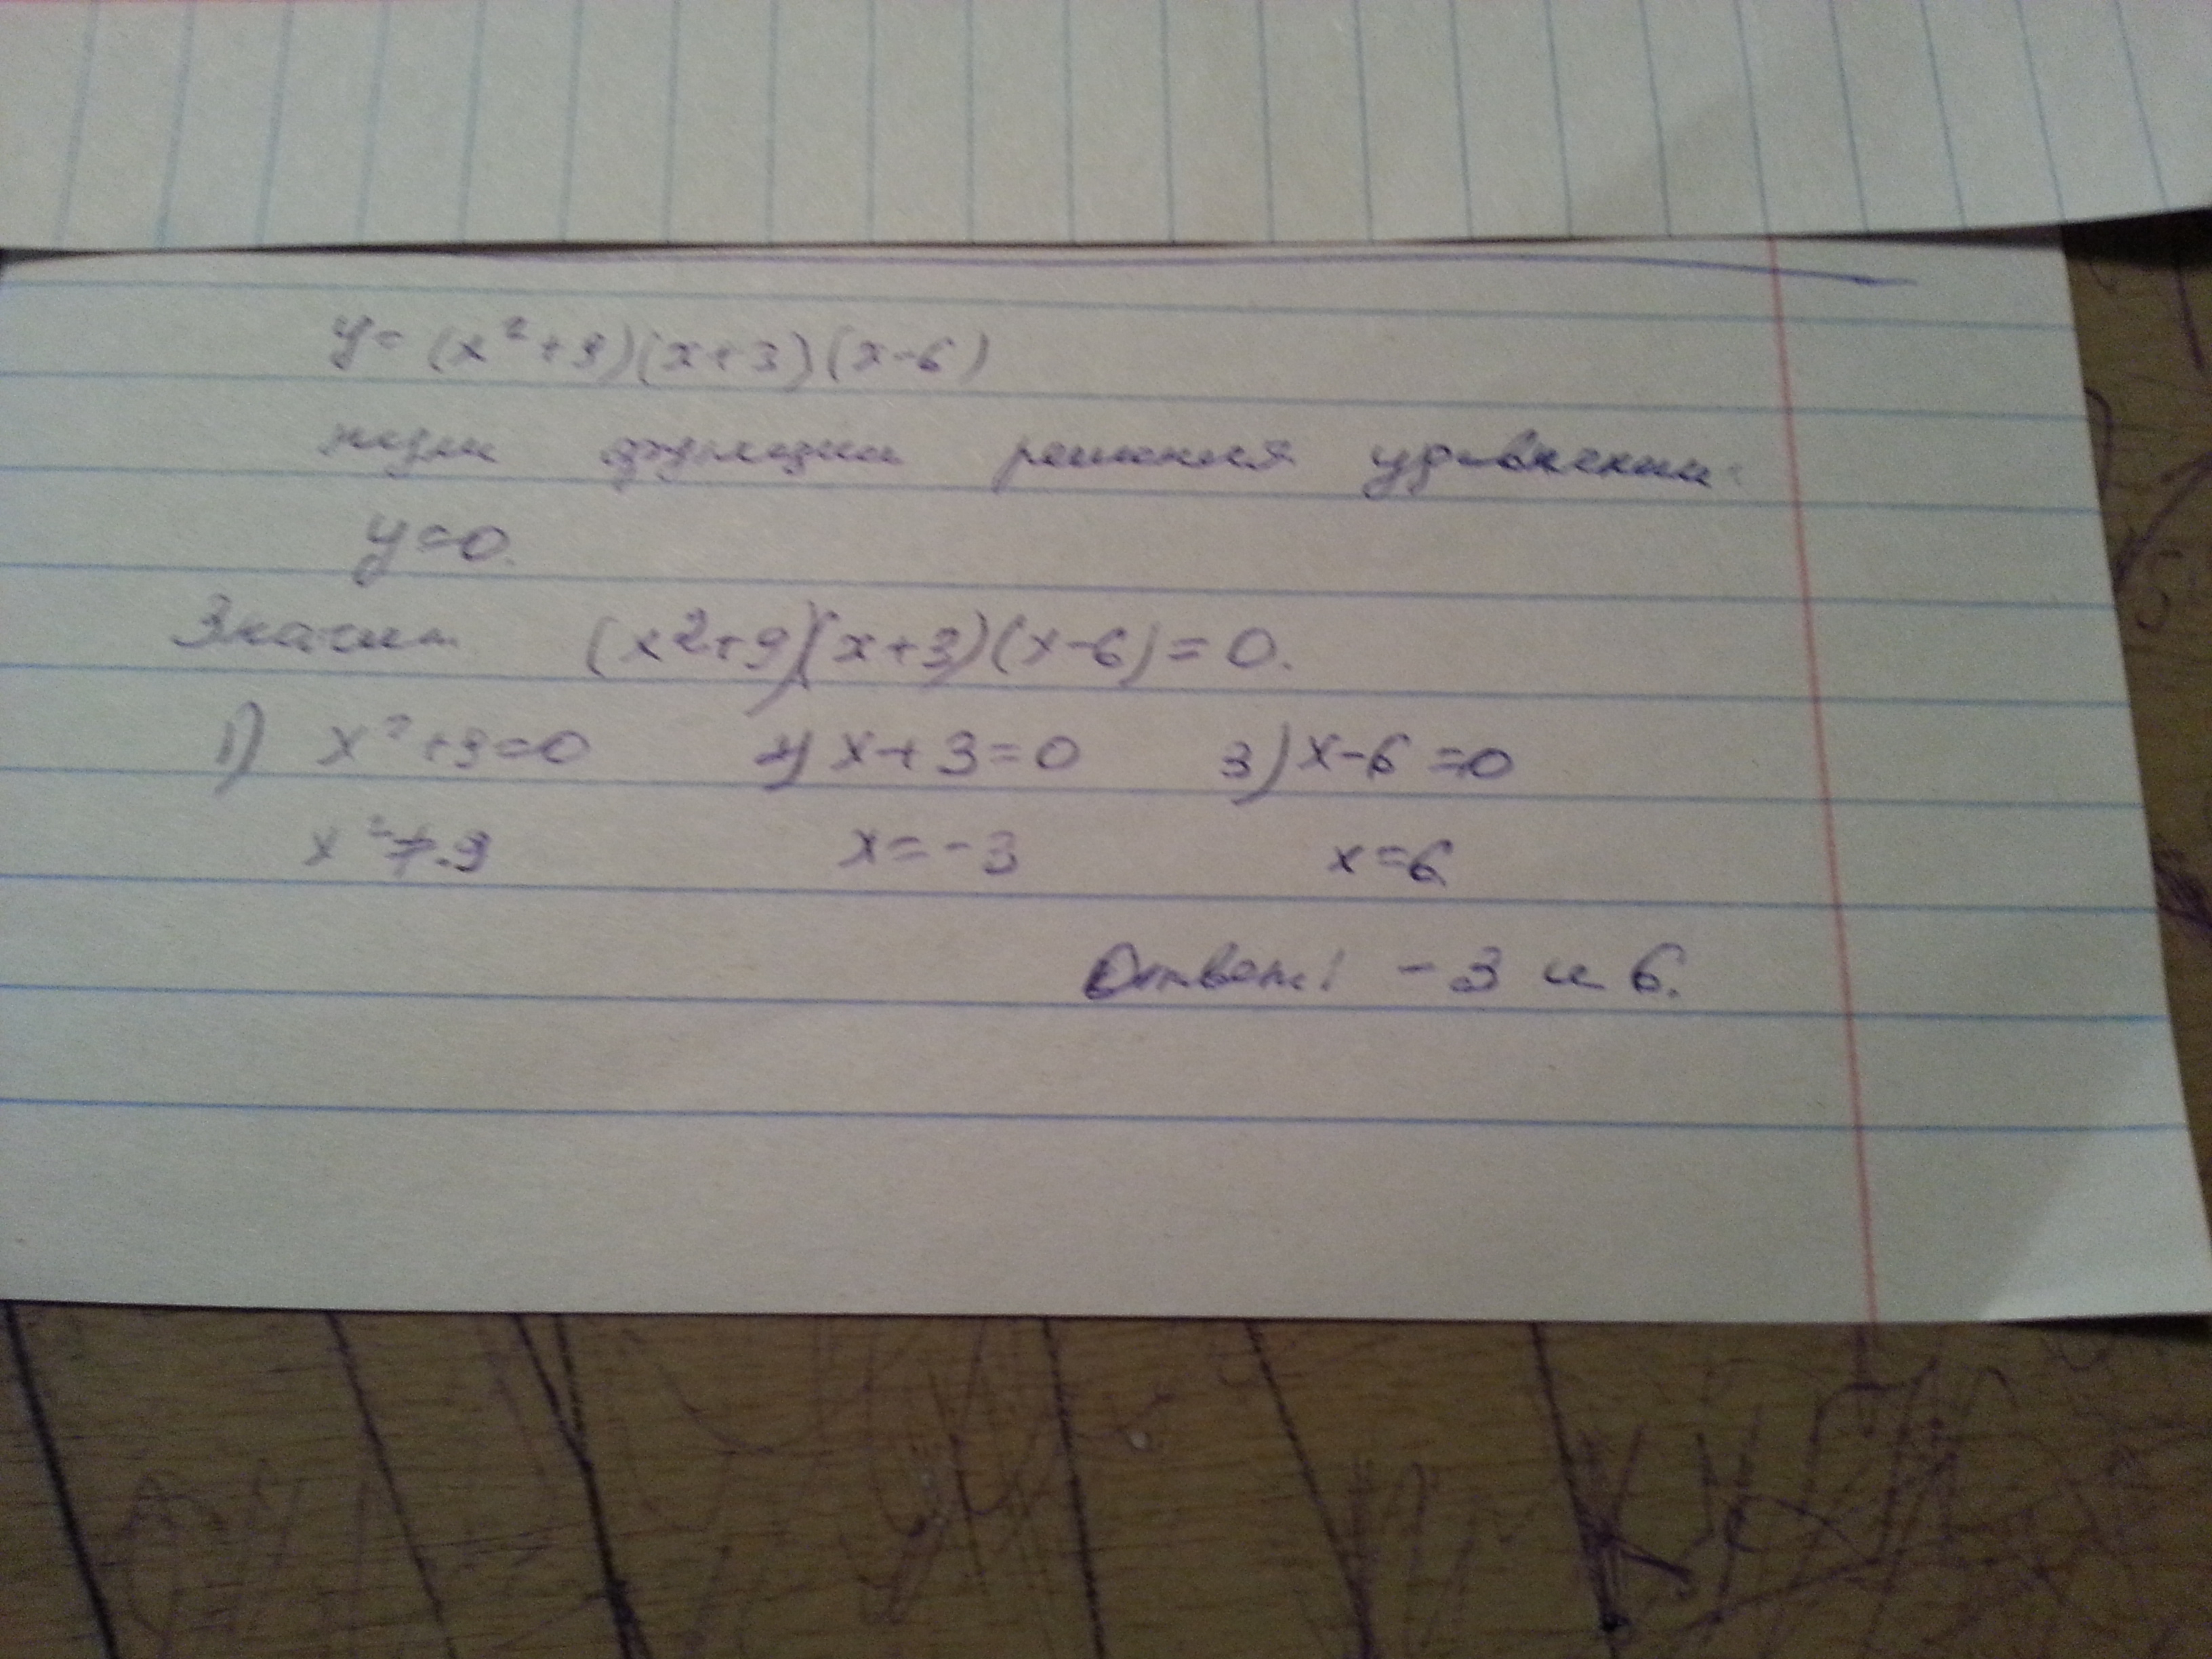 y=(x²+9)(x+3)(x-6)
нули функции решения уравнения
y=0.
Значит (x²+9)(x+3)(x-6)=0.
1) x²+9=0 2) x+3=0 3) x-6=0
x²≠-9 x=-3 x=6
Ответ: -3 и 6.